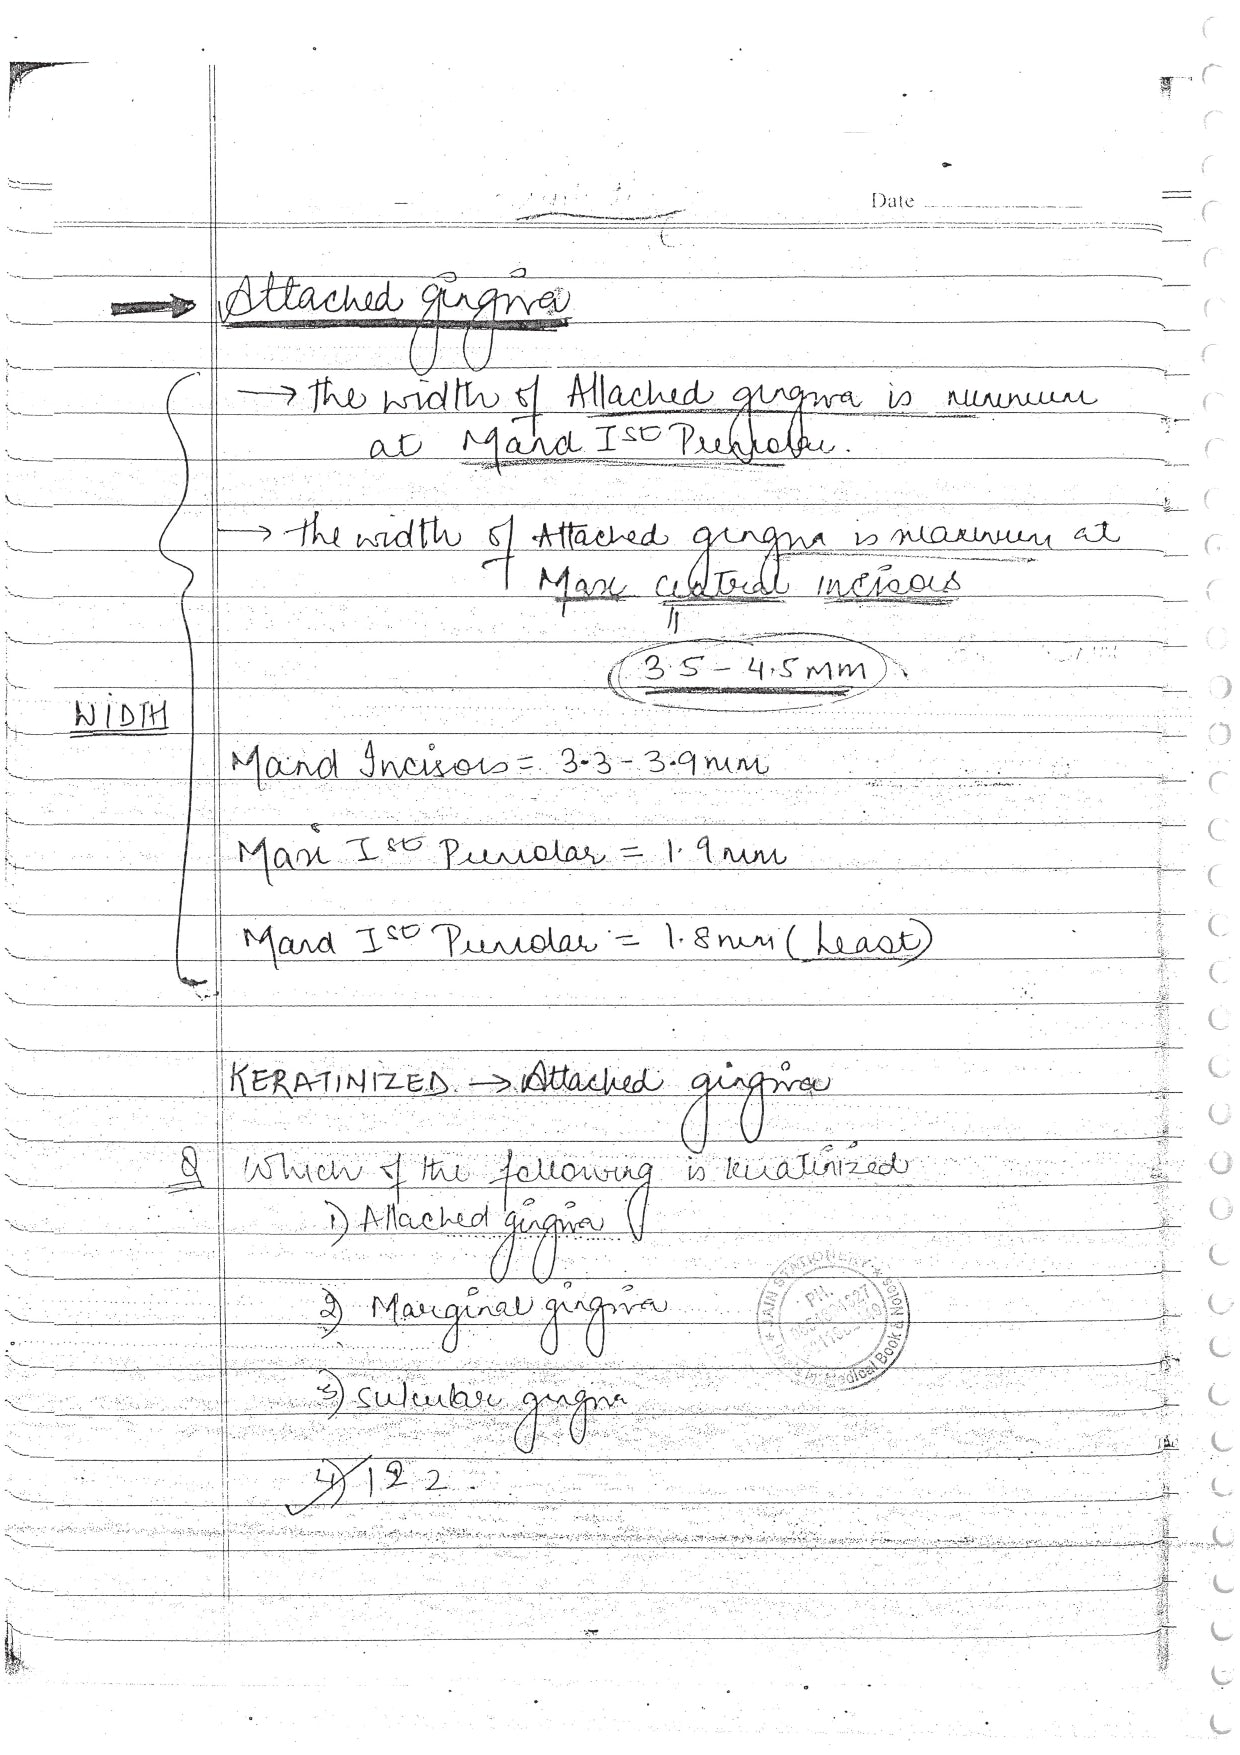 Date
Attached gingiva
→ the width of Attached gingiva is minimum
at Mand Ist Premolar.
→ the width of Attached gingiva is maximum at
Maxi central incisors
3.5 - 4.5 mm
WIDTH
Mand Incisors = 3.3 - 3.9 mm
Maxi Ist Premolar = 1.9 mm
Mand Ist Premolar = 1.8 mm (Least)
KERATINIZED → Attached gingiva
Q Which of the following is keratinized
1) Attached gingiva
2) Marginal gingiva
3) sulcular gingiva
4) 1 & 2.
JAIN STATIONERY
PH.
Medical Book & Notes